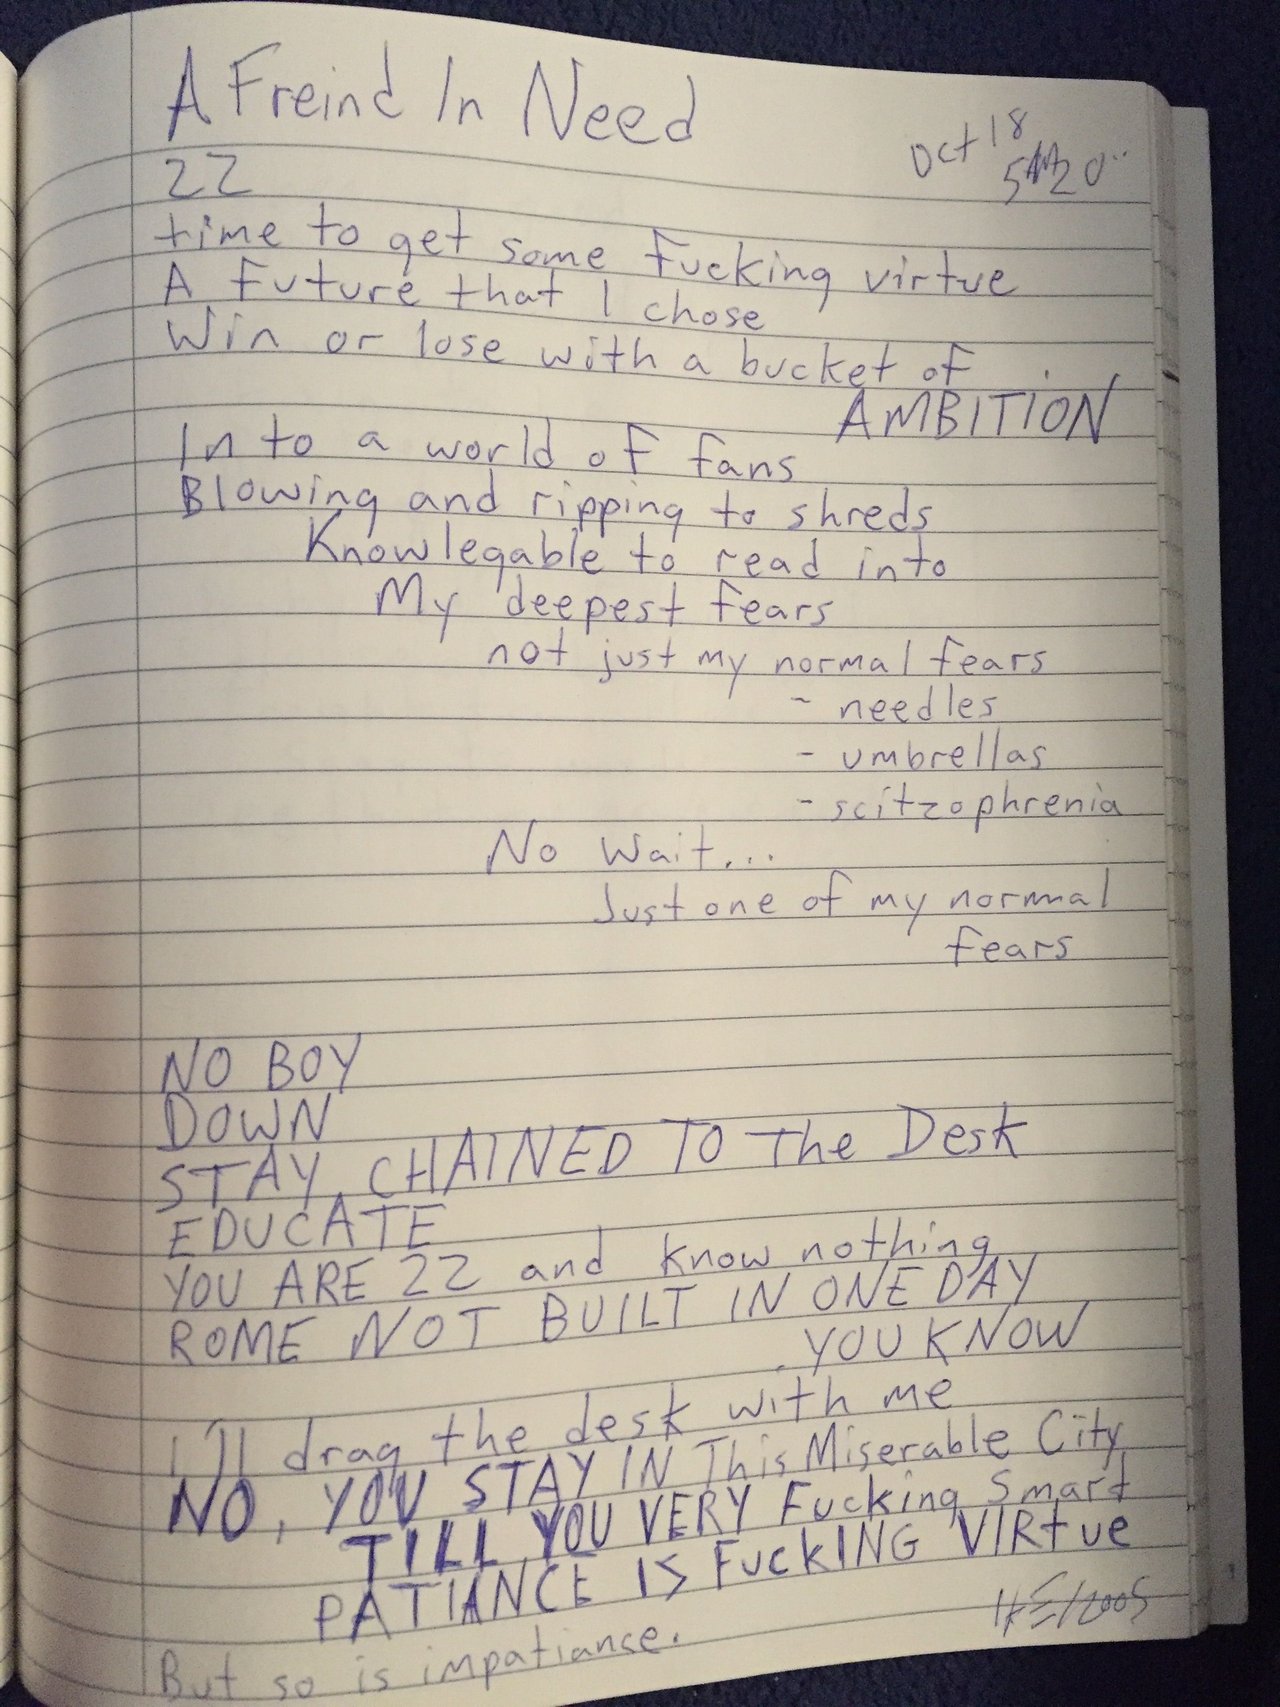 A Freind In Need
Oct 18
22
time to get some fucking virtue
A future that I chose
Win or lose with a bucket of
AMBITION
In to a world of fans
Blowing and ripping to shreds
Knowlegable to read into
My deepest fears
not just my normal fears
- needles
- umbrellas
- scitzophrenia
No Wait...
Just one of my normal
fears
NO BOY
DOWN
STAY CHAINED TO The Desk
EDUCATE
YOU ARE 22 and know nothing
ROME NOT BUILT IN ONE DAY
YOU KNOW
I'll drag the desk with me
NO, YOU STAY IN This Miserable City
TILL YOU VERY Fucking Smart
PATIANCE IS FucKING VIRtue
But so is impatiance.